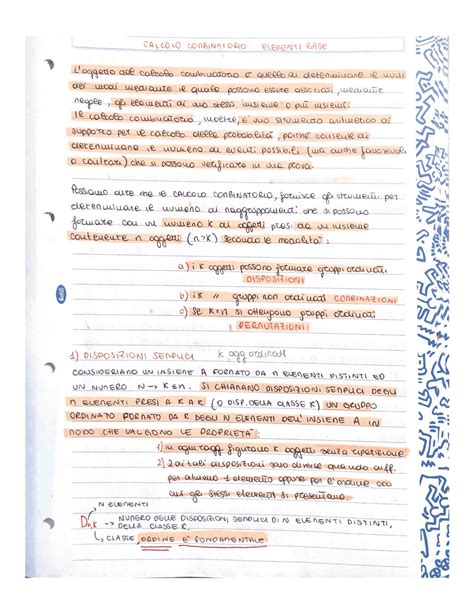 CALCOLO COMBINATORIO ELEMENTI BASE
L'oggetto del calcolo combinatorio è quello di determinare il num.
dei modi mediante il quale possono essere associati, mediante
regole, gli elementi di uno stesso insieme o più insiemi.
Il calcolo combinatorio, inoltre, è uno strumento aritmetico di
supporto per il calcolo delle probabilità, poiché consente di
determinare il numero di eventi possibili (ma anche favorevoli
o contrari) che si possono verificare in una prova.
Possiamo dire che il CALCOLO COMBINATORIO, fornisce gli strumenti per
determinare il numero di raggruppamenti che si possono
formare con un numero K di oggetti presi da un insieme
contenente n oggetti (n>K) secondo le modalità:
a) i K oggetti possono formare gruppi ordinati
DISPOSIZIONI
b) i K " gruppi non ordinati COMBINAZIONI
c) Se K=n si ottengono gruppi ordinati
PERMUTAZIONI
1) DISPOSIZIONI SEMPLICI K ogg ordinati
CONSIDERIAMO UN INSIEME A FORMATO DA n ELEMENTI DISTINTI ED
UN NUMERO N → K ≤ n. SI CHIAMANO DISPOSIZIONI SEMPLICI DEGLI
n ELEMENTI PRESI A K A K (O DISP. DELLA CLASSE K) UN GRUPPO
ORDINATO FORMATO DA K DEGLI N ELEMENTI DELL'INSIEME A IN
MODO CHE VALGONO LE PROPRIETÀ:
1) in ogni ragg. figurano K oggetti senza ripetizione
2) 2 di tali disposizioni sono diverse quando diff.
per almeno 1 elemento oppure per l'ordine con
cui gli stessi elementi si presentano.
N ELEMENTI
Dn,K → NUMERO DELLE DISPOSIZIONI SEMPLICI DI N ELEMENTI DISTINTI,
DELLA CLASSE K.
CLASSE, ORDINE È FONDAMENTALE